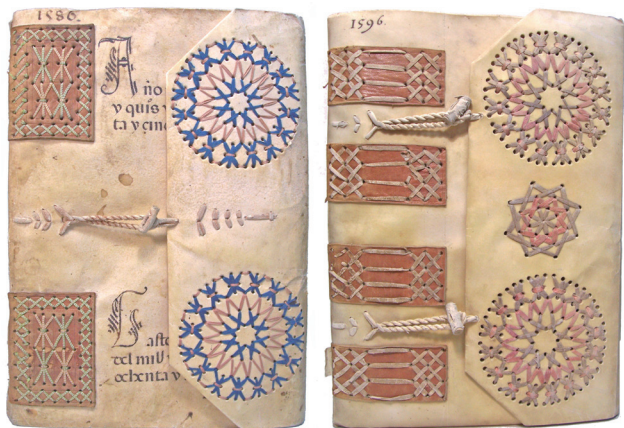 1586.
Año
y quis
ta y cinc
Caste
del mill
ochenta y
1596